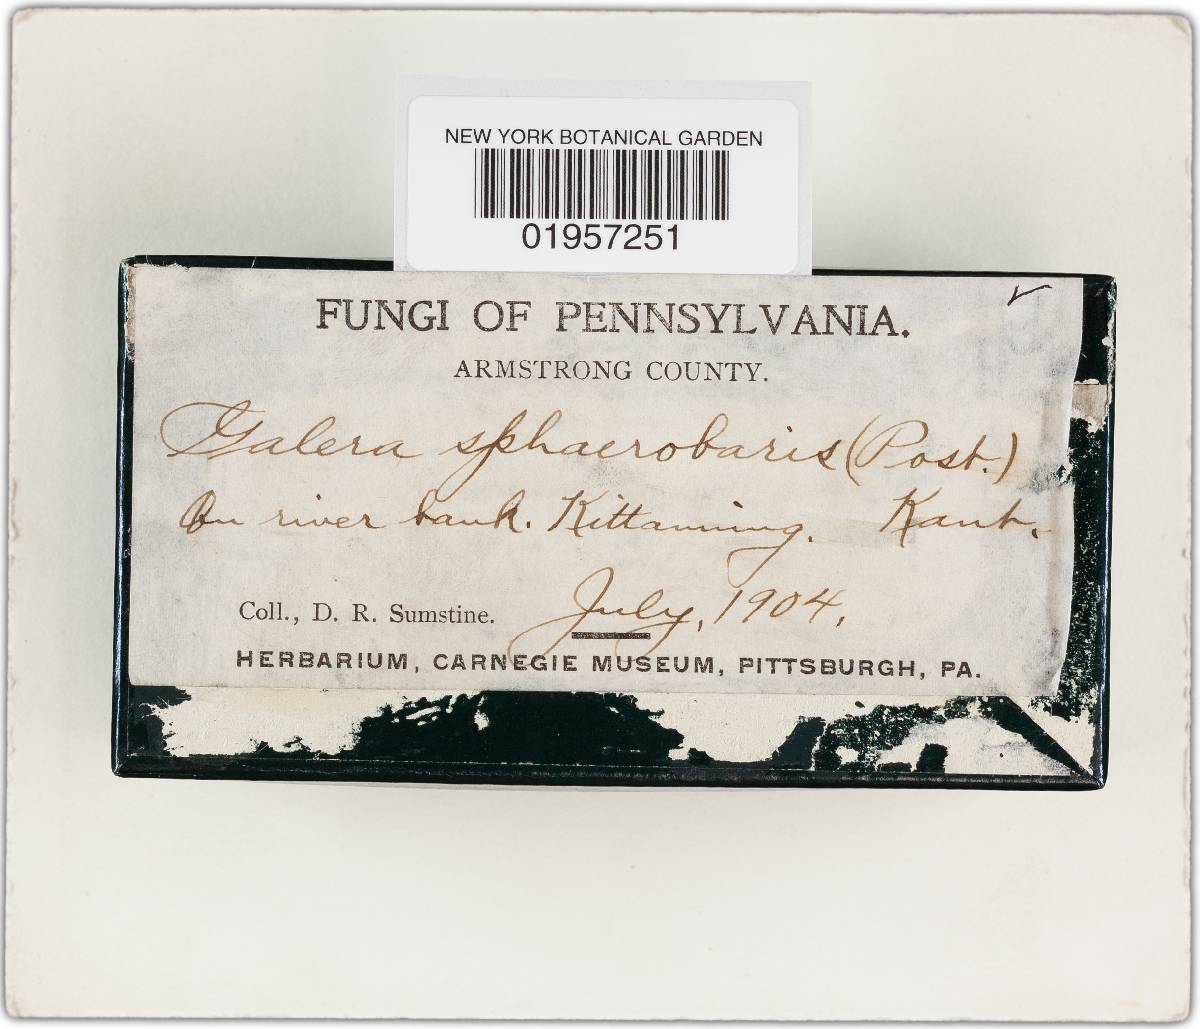 NEW YORK BOTANICAL GARDEN
01957251
FUNGI OF PENNSYLVANIA.
ARMSTRONG COUNTY.
Galera sphaerobaris (Post.)
On river bank. Kittanning.
July, 1904.
Coll., D. R. Sumstine.
HERBARIUM, CARNEGIE MUSEUM, PITTSBURGH, PA.